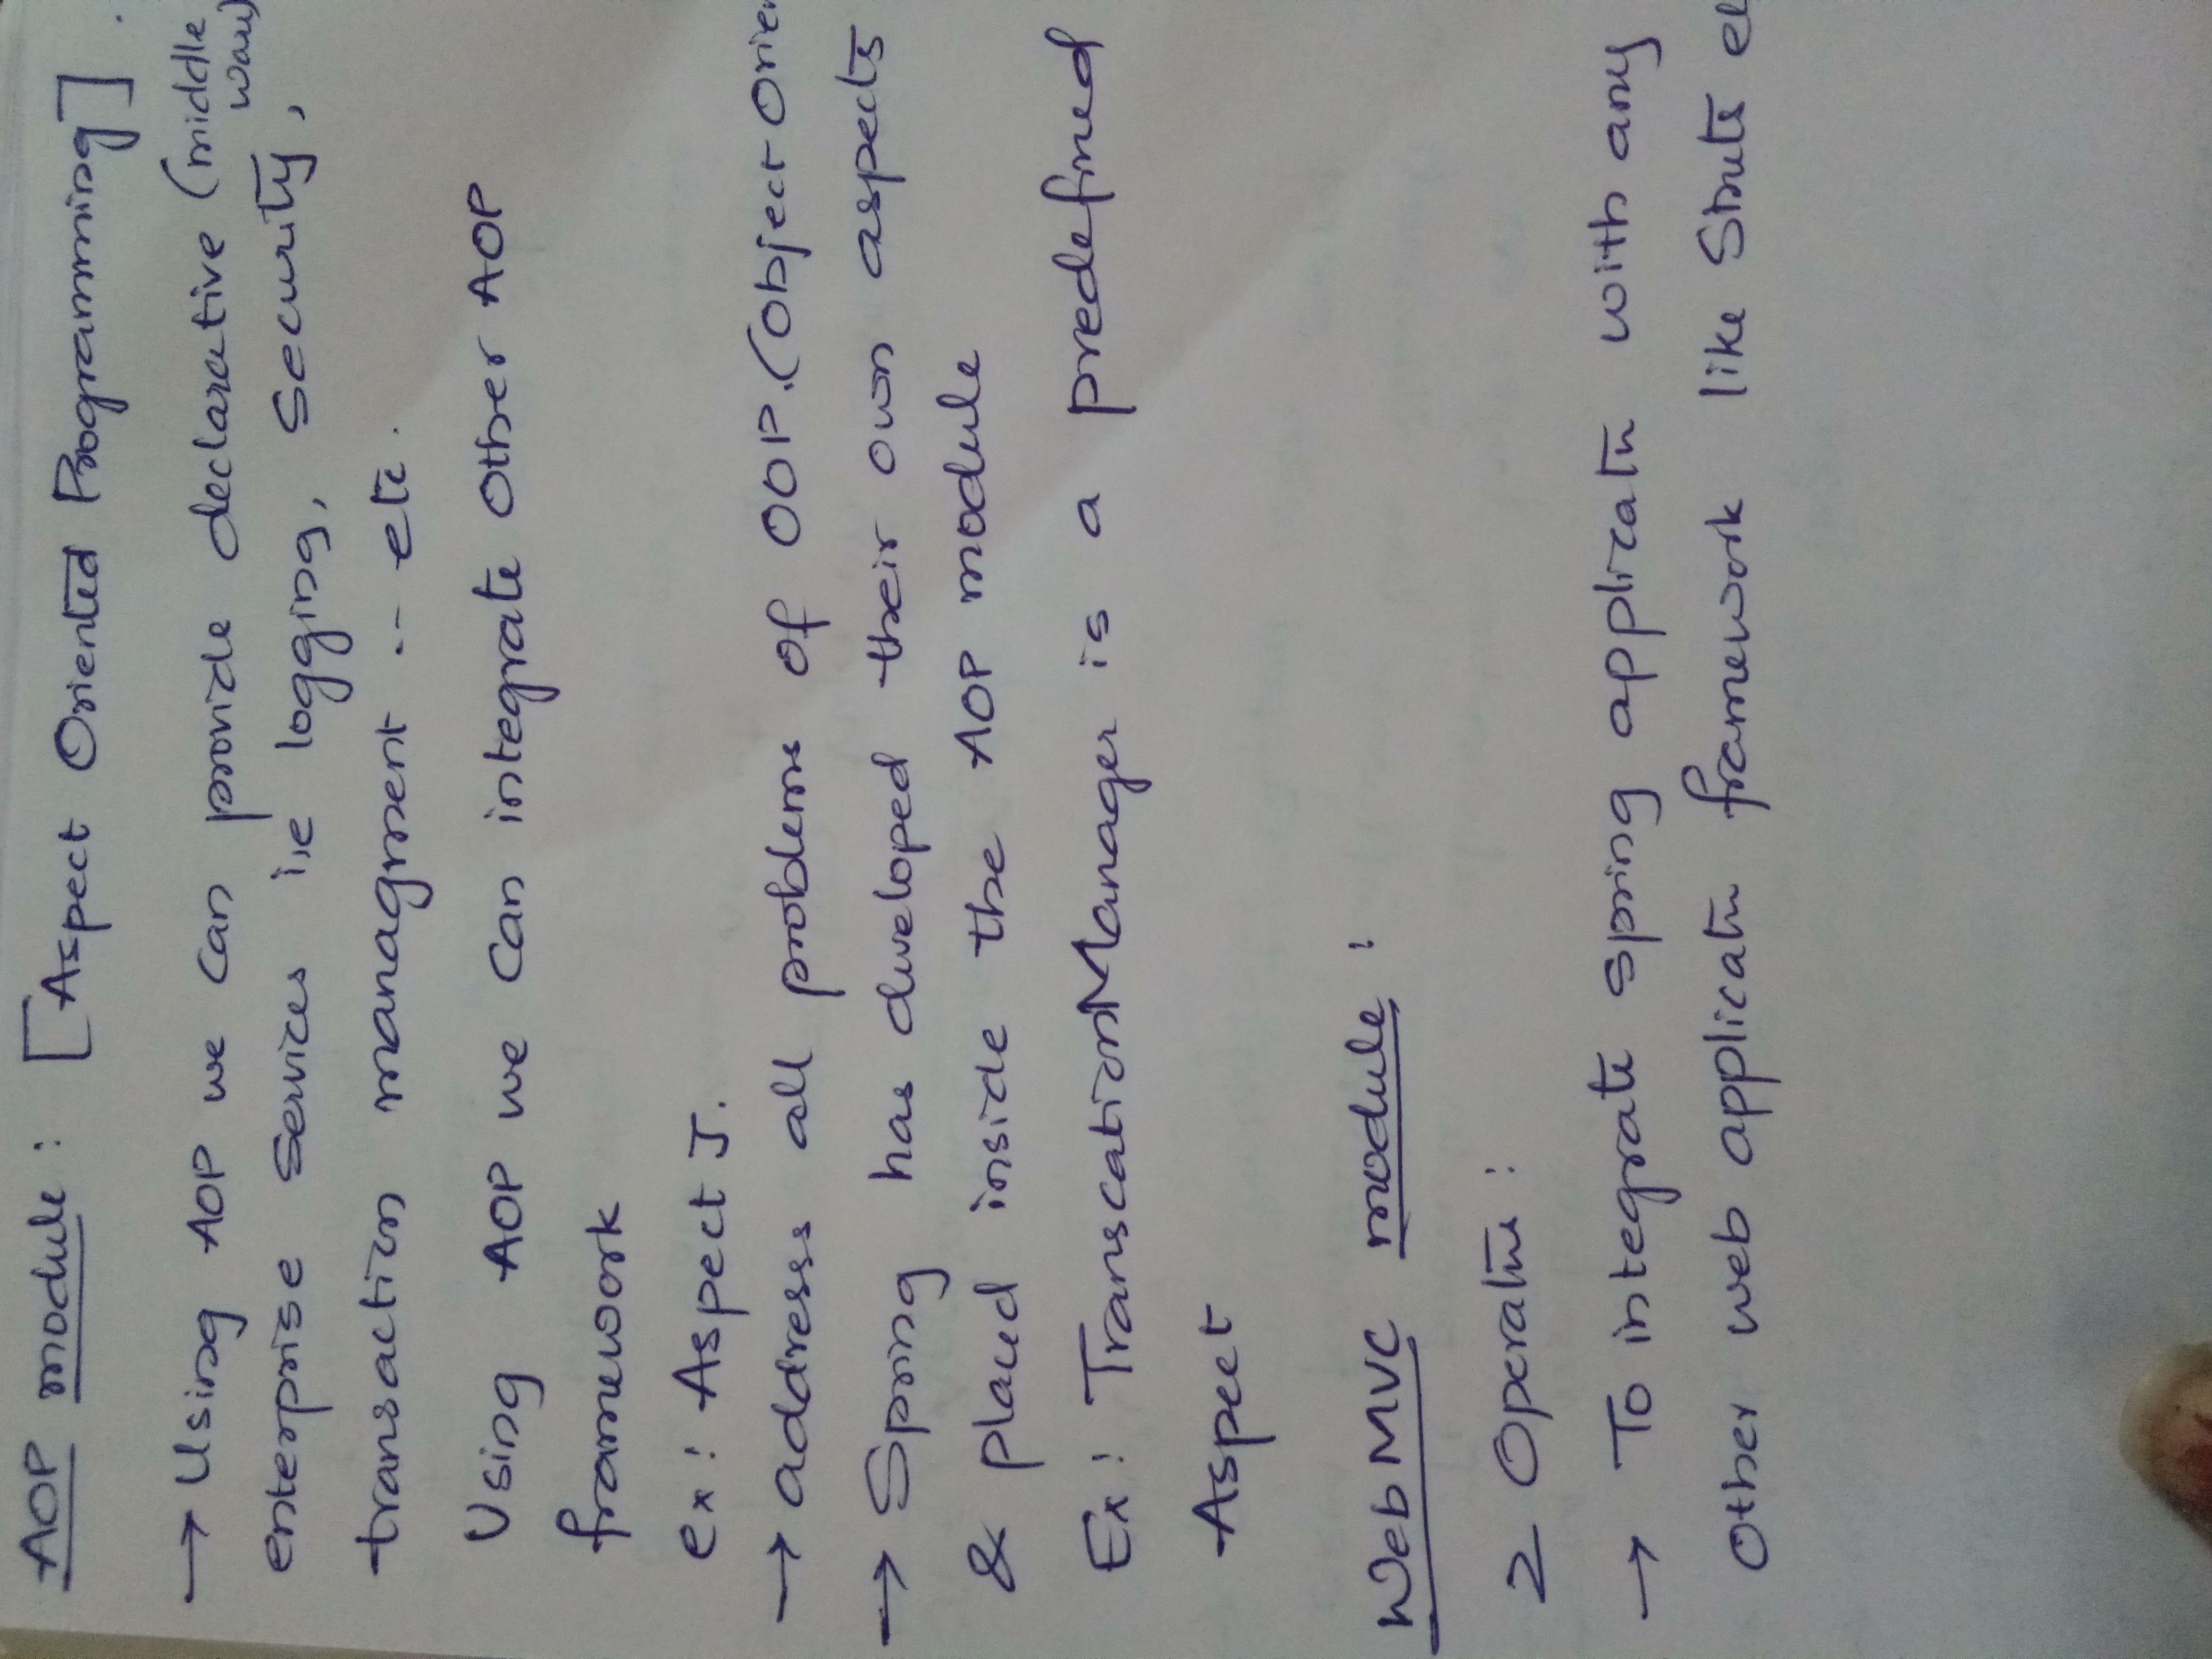 AOP module : [Aspect Oriented Programming].
→ Using AOP we can provide declarative (middle
ware)
enterprise services i.e logging, security,
transaction managment -- etc.
Using AOP we can integrate other AOP
framework
ex: Aspect J.
→ address all problems of OOP.(Object Orien
→ Spring has developed their own aspects
& placed inside the AOP module
Ex: TranscationManager is a predefined
Aspect
Web MVC module :
2 Operatn :
→ To integrate spring applicatn with any
other web applicatn framework like Struts